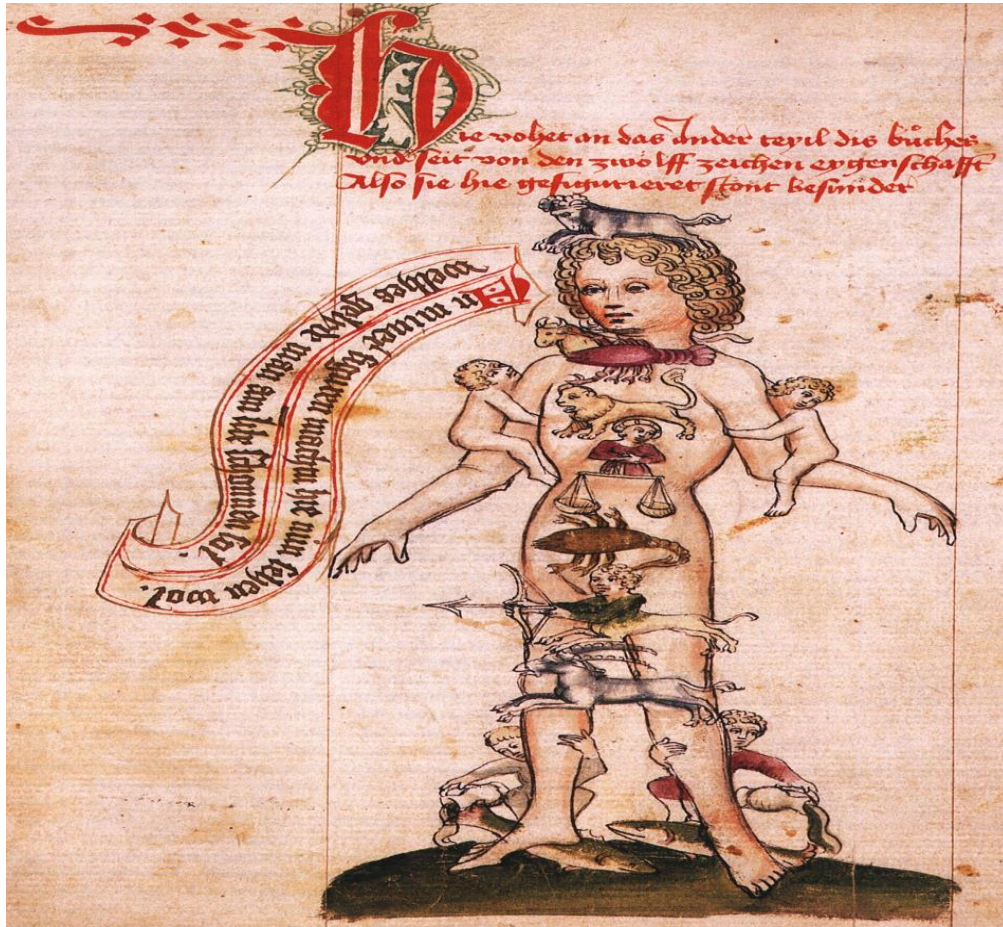 Hie vohet an das Ander teyil dis bůches
vnd seit von den zwölff zeichen eygenschafft
Also sie hie gefigurieret stont besunder
In machtu hie nin sehen wol.
welhes gelyde man an hie sol.